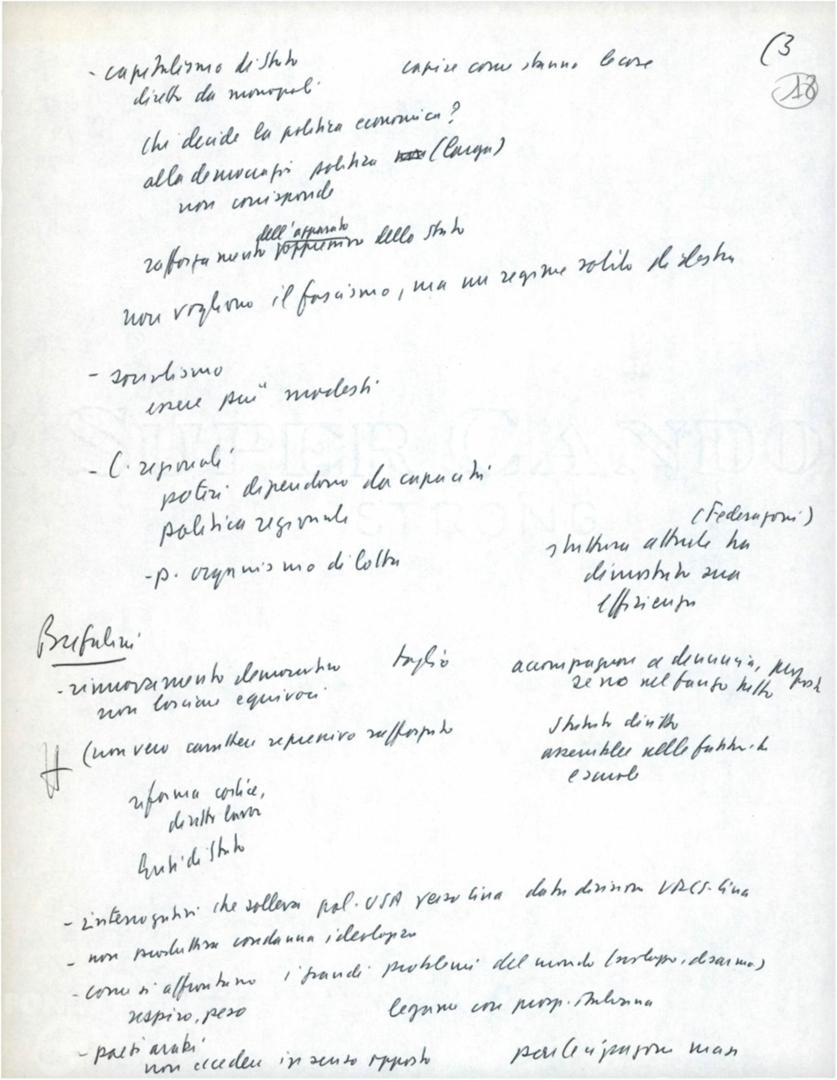 (3
18
- capitalismo di Stato   capire come stanno le cose
diretto da monopoli
chi decide la politica economica?
alla democrazia politica (larga)
non corrisponde
dell'apparato
rafforzamento oppressivo dello Stato
non vogliono il fascismo, ma un regime solito di destra
- socialismo
essere più modesti
- C. regionali
poteri dipendono da capacità
politica regionale
(Federazioni)
- p. organismo di lotta   struttura attuale ha
dimostrato sua
efficienza
Bufalini
- rinnovamento democratico   taglio   accompagnare a denuncia,
non lasciare equivoci   se no nel fango tutto
(non vero carattere repressivo rafforzato   Statuto diritto
assemblee nelle fabbriche
e scuole
riforma codice,
diritto lavor
Enti di Stato
- interrogativi che solleva pol. USA verso Cina   data divisione URSS-Cina
- non produttiva condanna ideologica
- come si affrontano i grandi problemi del mondo (sviluppo, disarmo)
respiro, peso   legame con prosp. italiana
- paesi arabi
non eccedere in senso opposto   partecipazione mass